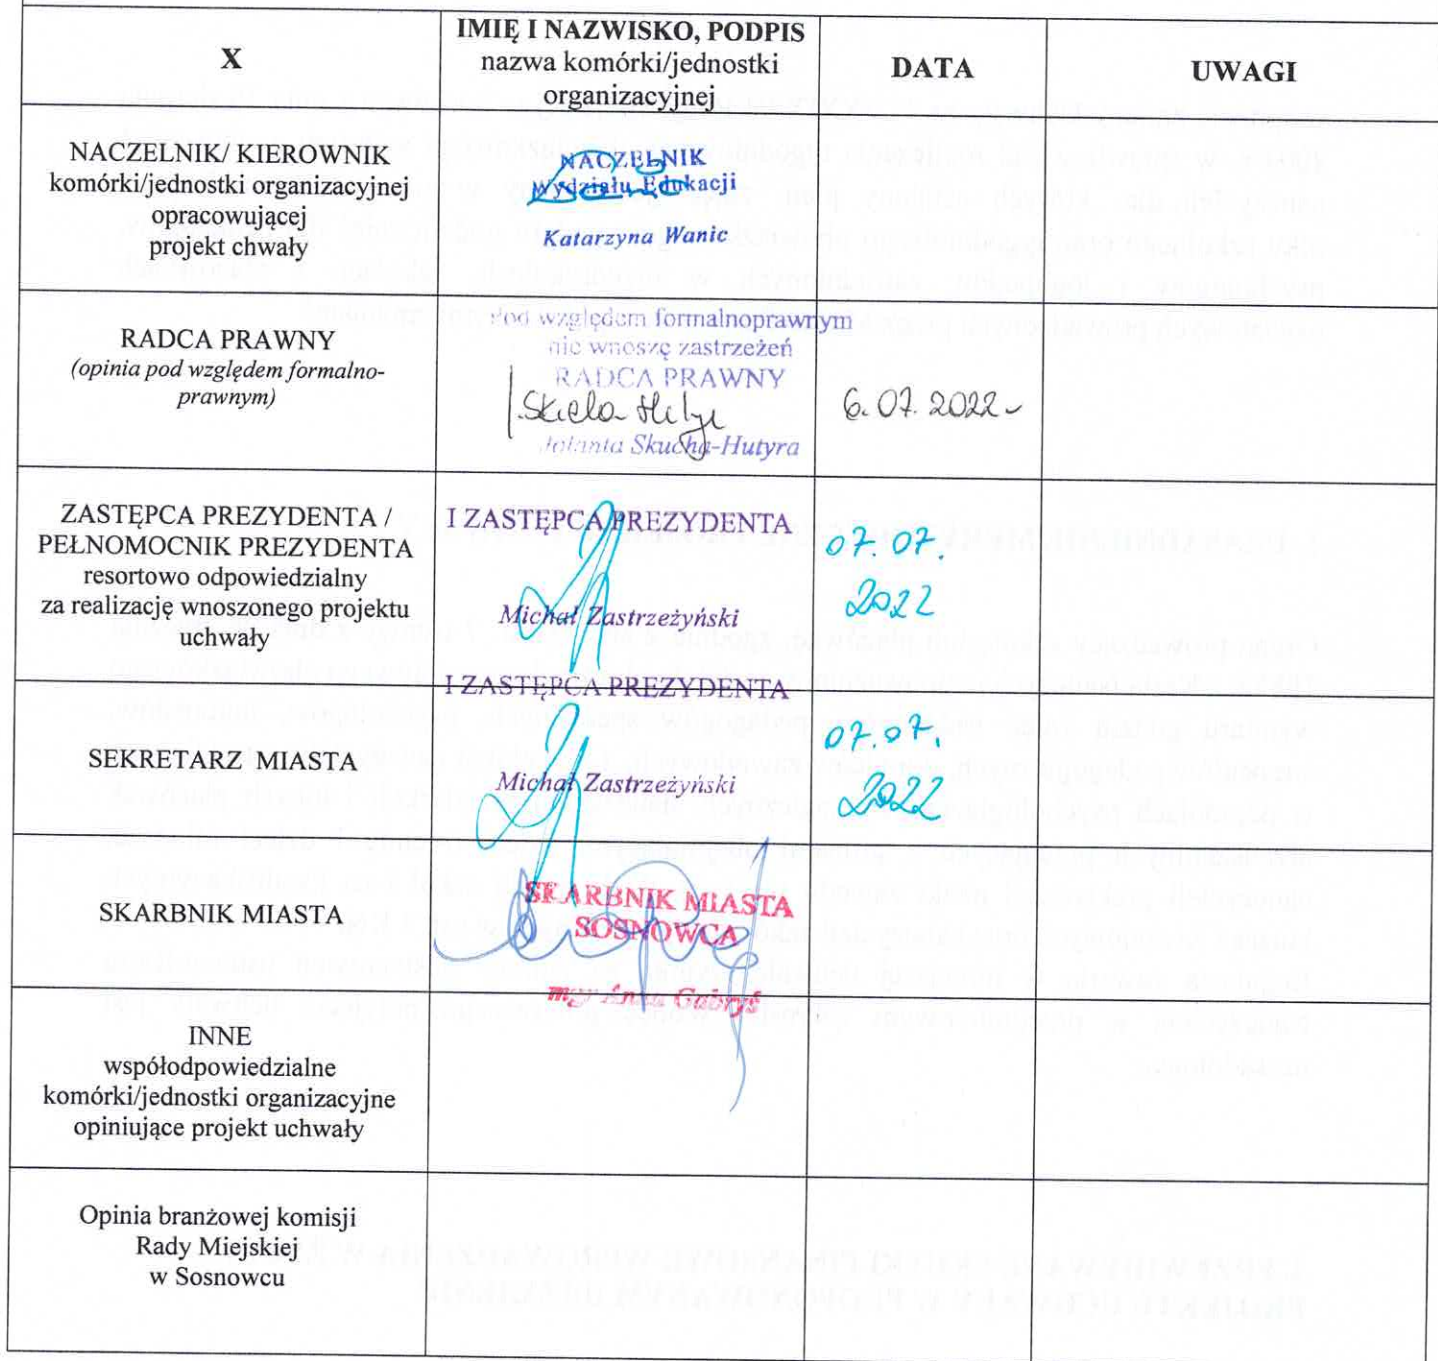 X
IMIĘ I NAZWISKO, PODPIS
nazwa komórki/jednostki
organizacyjnej
DATA
UWAGI
NACZELNIK/ KIEROWNIK
komórki/jednostki organizacyjnej
opracowującej
projekt chwały
NACZELNIK
Wydziału Edukacji
Katarzyna Wanic
RADCA PRAWNY
(opinia pod względem formalno-
prawnym)
Pod względem formalnoprawnym
nie wnoszę zastrzeżeń
RADCA PRAWNY
Jolanta Skucha-Hutyra
6.07.2022
ZASTĘPCA PREZYDENTA /
PEŁNOMOCNIK PREZYDENTA
resortowo odpowiedzialny
za realizację wnoszonego projektu
uchwały
I ZASTĘPCA PREZYDENTA
Michał Zastrzeżyński
07.07.
2022
SEKRETARZ MIASTA
I ZASTĘPCA PREZYDENTA
Michał Zastrzeżyński
07.07.
2022
SKARBNIK MIASTA
SKARBNIK MIASTA
SOSNOWCA
mgr Anna Gabryś
INNE
współodpowiedzialne
komórki/jednostki organizacyjne
opiniujące projekt uchwały
Opinia branżowej komisji
Rady Miejskiej
w Sosnowcu